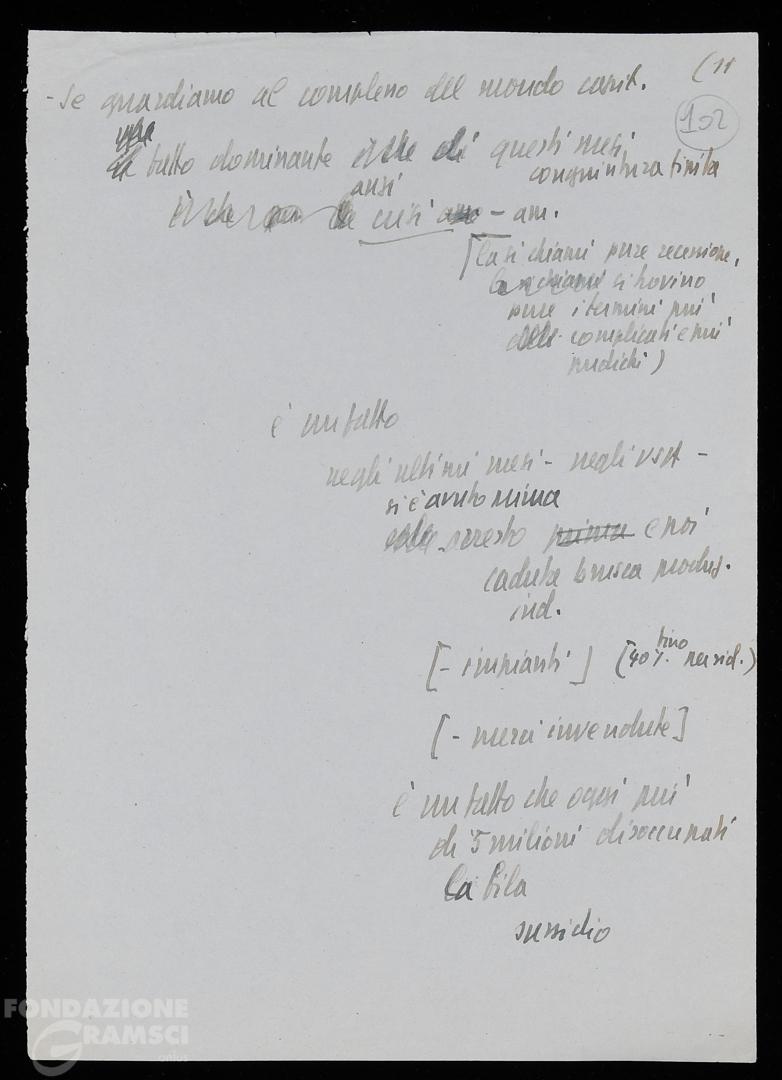 (11
102
- Se guardiamo al complesso del mondo capit.
il fatto dominante di questi mesi
congiuntura finita
anzi
è che la crisi - am.
[la si chiami pure recessione,
si trovino
pure i termini più
complicati e più
pudichi)
è un fatto
negli ultimi mesi - negli USA -
si è avuto prima
arresto prima e poi
caduta brusca produz.
ind.
[- impianti] (40% fino per sid.)
[- merci invendute]
è un fatto che oggi più
di 5 milioni disoccupati
la fila
sussidio
FONDAZIONE
GRAMSCI
onlus